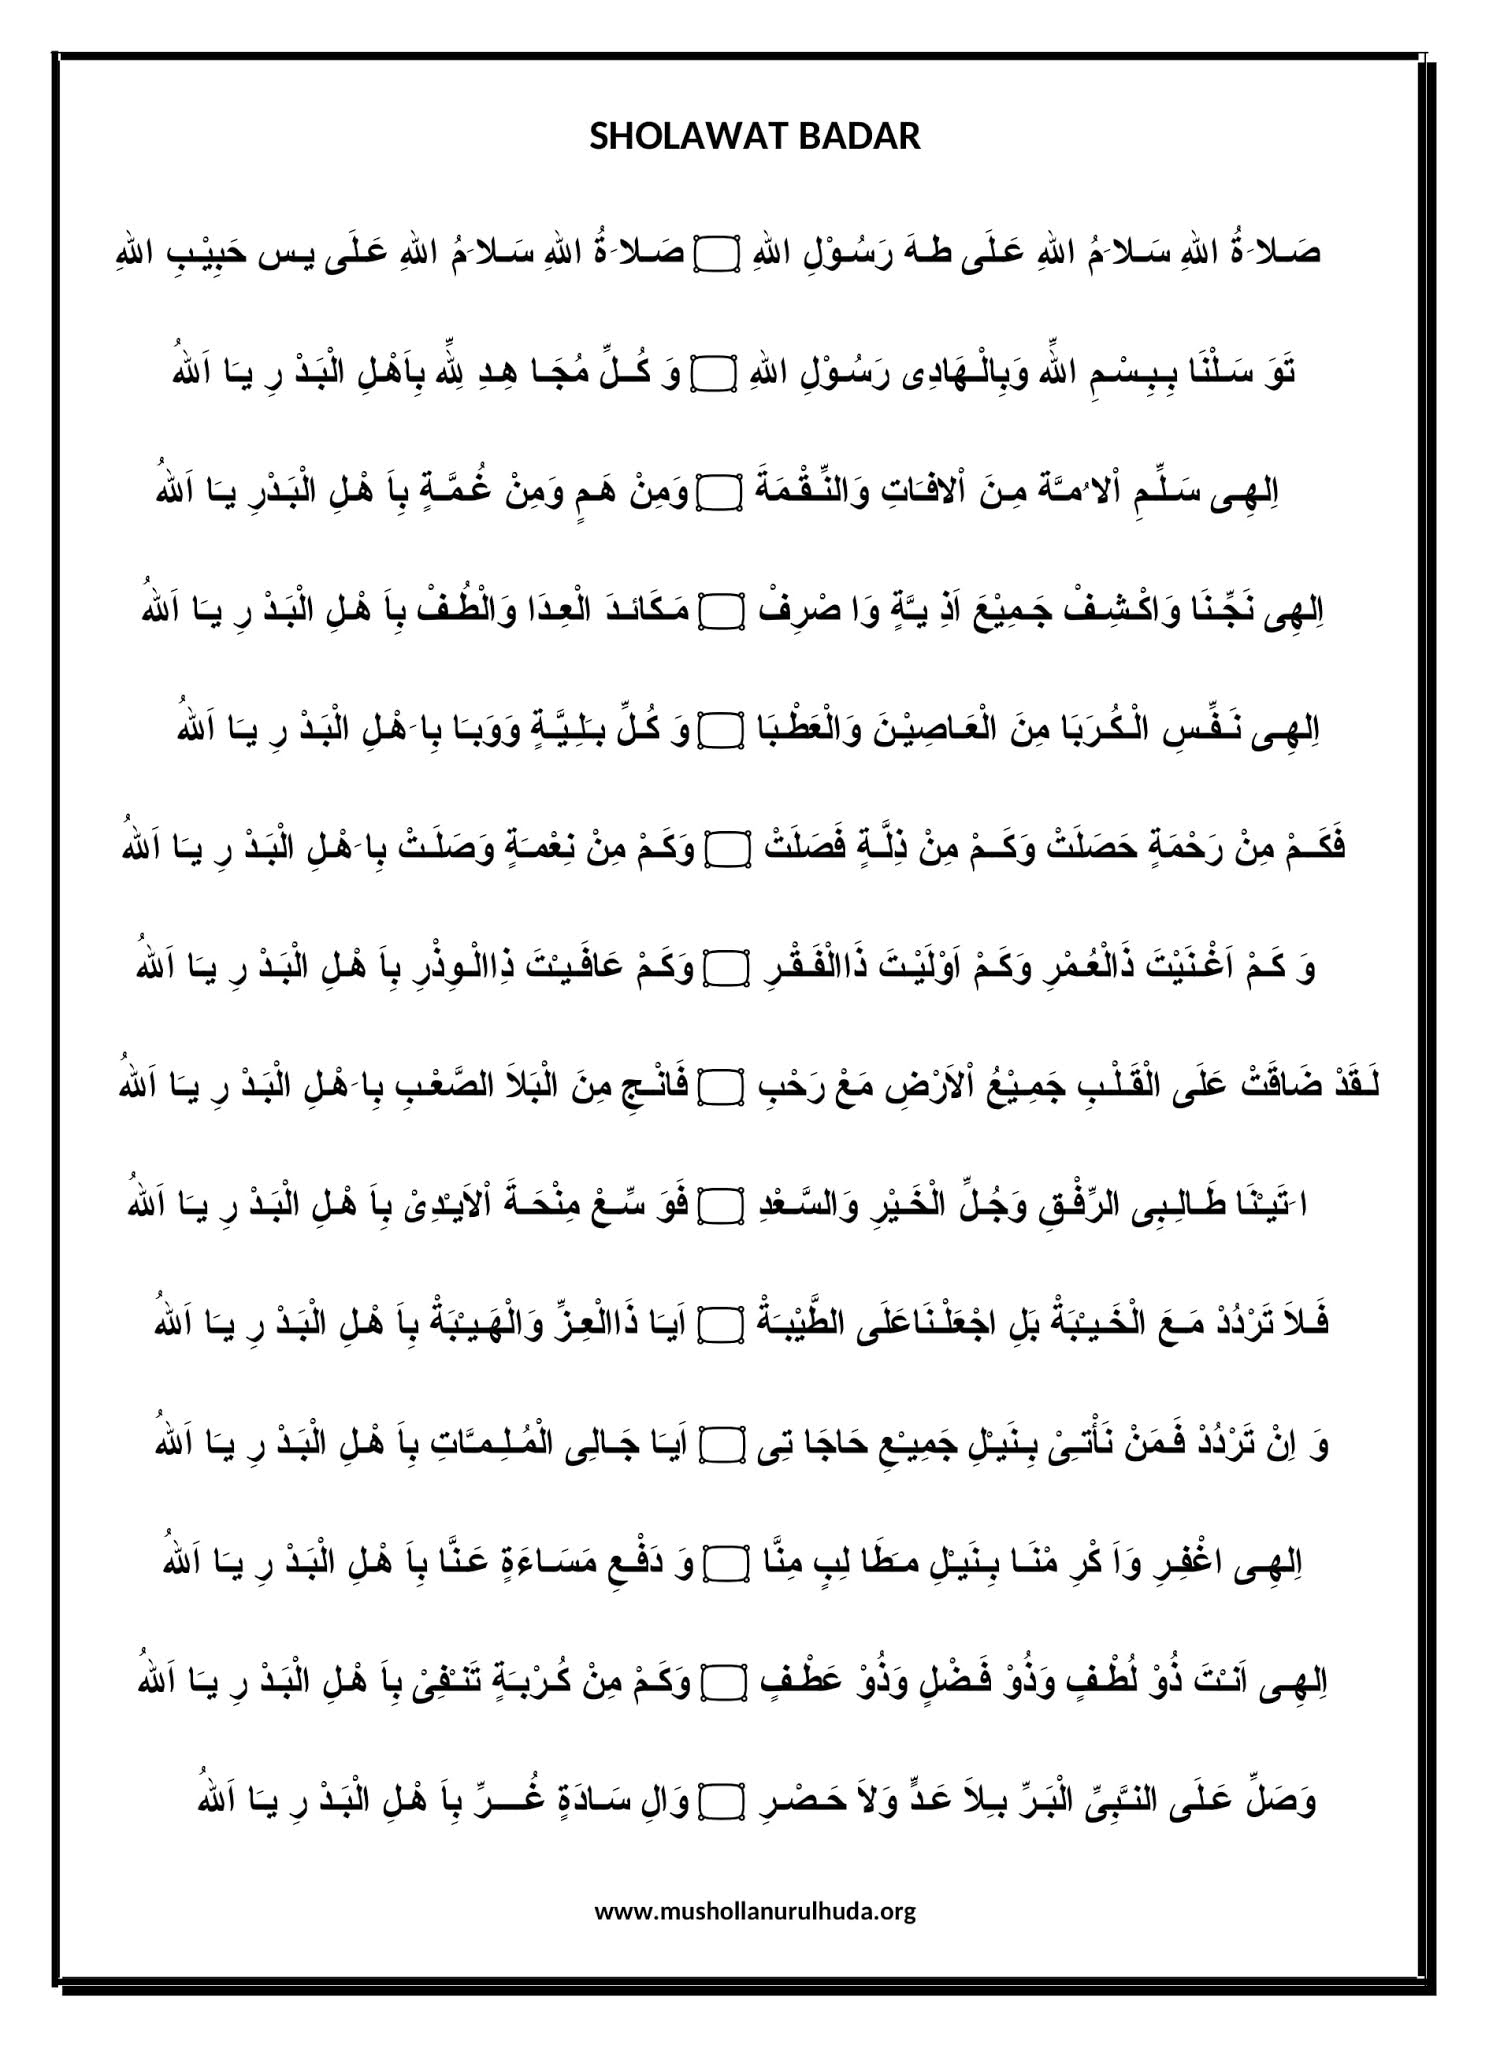 SHOLAWAT BADAR
صَلَاةُ اللهِ سَلَامُ اللهِ عَلَى طٰهَ رَسُوْلِ اللهِ ۝ صَلَاةُ اللهِ سَلَامُ اللهِ عَلَى يس حَبِيْبِ اللهِ
تَوَ سَلْنَا بِبِسْمِ اللهِ وَبِالْهَادِى رَسُوْلِ اللهِ ۝ وَ كُلِّ مُجَا هِدِ لِلّٰهِ بِاَهْلِ الْبَدْ رِ يَا اَللهُ
اِلهِى سَلِّمِ اْلاُمَّة مِنَ اْلافَاتِ وَالنِّقْمَةَ ۝ وَمِنْ هَمٍ وَمِنْ غُمَّةٍ بِاَ هْلِ الْبَدْرِ يَا اَللهُ
اِلهِى نَجِّنَا وَاكْشِفْ جَمِيْعَ اَذِ يَّةٍ وَا صْرِفْ ۝ مَكَائدَ الْعِدَا وَالْطُفْ بِاَ هْلِ الْبَدْ رِ يَا اَللهُ
اِلهِى نَفِّسِ الْكُرَبَا مِنَ الْعَاصِيْنَ وَالْعَطْبَا ۝ وَ كُلِّ بَلِيَّةٍ وَوَبَا بِاَهْلِ الْبَدْ رِ يَا اَللهُ
فَكَمْ مِنْ رَحْمَةٍ حَصَلَتْ وَكَمْ مِنْ ذِلَّةٍ فَصَلَتْ ۝ وَكَمْ مِنْ نِعْمَةٍ وَصَلَتْ بِاَهْلِ الْبَدْ رِ يَا اَللهُ
وَ كَمْ اَغْنَيْتَ ذَالْعُمْرِ وَكَمْ اَوْلَيْتَ ذَاالْفَقْرِ ۝ وَكَمْ عَافَيْتَ ذِاالْوِذْرِ بِاَ هْلِ الْبَدْ رِ يَا اَللهُ
لَقَدْ ضَاقَتْ عَلَى الْقَلْبِ جَمِيْعُ اْلاَرْضِ مَعْ رَحْبِ ۝ فَانْجِ مِنَ الْبَلاَ الصَّعْبِ بِاَهْلِ الْبَدْ رِ يَا اَللهُ
اَتَيْنَا طَالِبِى الرِّفْقِ وَجُلِّ الْخَيْرِ وَالسَّعْدِ ۝ فَوَ سِّعْ مِنْحَةَ اْلاَيْدِىْ بِاَ هْلِ الْبَدْ رِ يَا اَللهُ
فَلاَ تَرْدُدْ مَعَ الْخَيْبَةْ بَلِ اجْعَلْنَاعَلَى الطَّيْبَةْ ۝ اَيَا ذَاالْعِزِّ وَالْهَيْبَةْ بِاَ هْلِ الْبَدْ رِ يَا اَللهُ
وَ اِنْ تَرْدُدْ فَمَنْ نَأْتِىْ بِنَيْلِ جَمِيْعِ حَاجَا تِى ۝ اَيَا جَالِى الْمُلِمَّاتِ بِاَ هْلِ الْبَدْ رِ يَا اَللهُ
اِلهِى اغْفِرِ وَاَ كْرِ مْنَا بِنَيْلِ مَطَا لِبٍ مِنَّا ۝ وَ دَفْعِ مَسَاءَةٍ عَنَّا بِاَ هْلِ الْبَدْ رِ يَا اَللهُ
اِلهِى اَنْتَ ذُوْ لُطْفٍ وَذُوْ فَضْلٍ وَذُوْ عَطْفٍ ۝ وَكَمْ مِنْ كُرْبَةٍ تَنْفِىْ بِاَ هْلِ الْبَدْ رِ يَا اَللهُ
وَصَلِّ عَلَى النَّبِىِّ الْبَرِّ بِلاَ عَدٍّ وَلاَ حَصْرِ ۝ وَالِ سَادَةٍ غُرِّ بِاَ هْلِ الْبَدْ رِ يَا اَللهُ
www.mushollanurulhuda.org